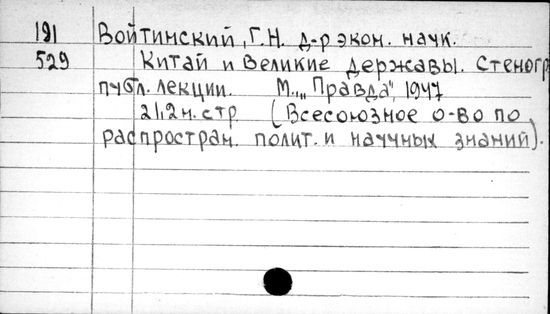 191 Войтинский, Г.Н. д-р экон. наук.
529 Китай и великие державы. Стеногр.
публ. лекции. М., „Правда", 1947
21,2 н. стр. (Всесоюзное о-во по
распростран. полит. и научных знаний).